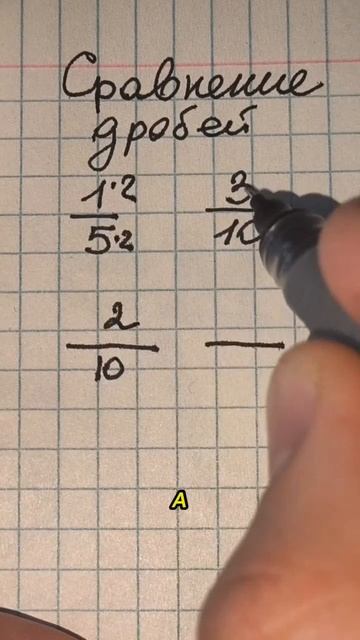 Сравнение
дробей
1·2 3
5·2 10
2
10
А